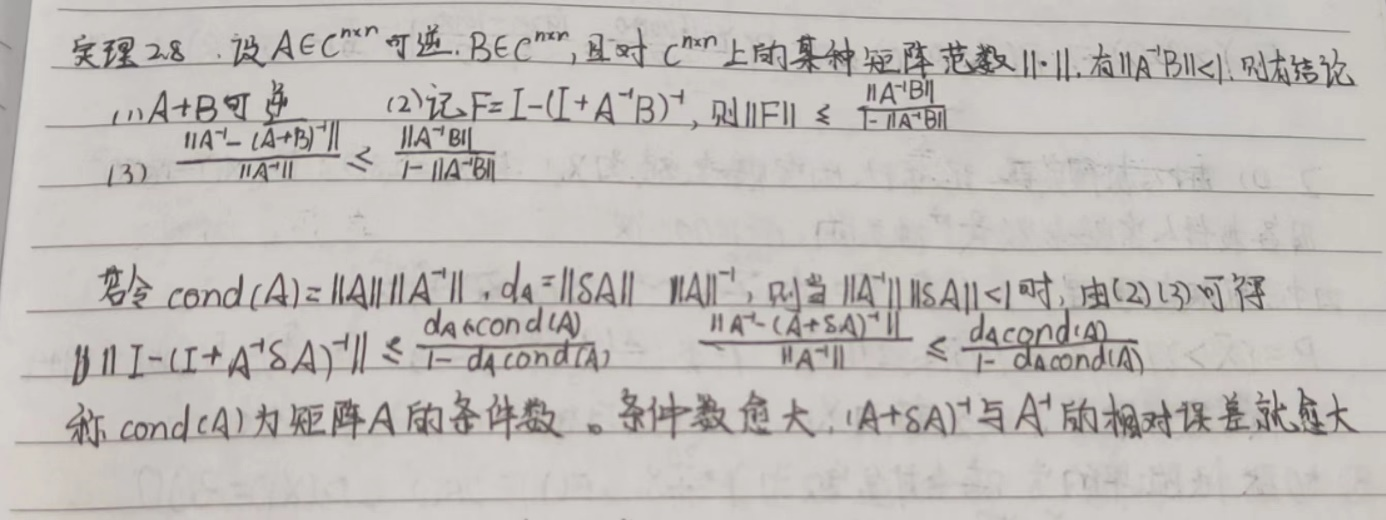 定理2.8.设A∈Cⁿˣⁿ可逆.B∈Cⁿˣⁿ,且对Cⁿˣⁿ上的某种矩阵范数||·||.有||A⁻¹B||<1.则有结论
(1)A+B可逆 (2)记F=I-(I+A⁻¹B)⁻¹,则||F|| ≤ ||A⁻¹B|| / 1-||A⁻¹B||
(3) ||A⁻¹-(A+B)⁻¹|| / ||A⁻¹|| ≤ ||A⁻¹B|| / 1-||A⁻¹B||
若令 cond(A)=||A|| ||A⁻¹||,d_A=||δA|| ||A||⁻¹,则当||A⁻¹|| ||δA||<1时,由(2)(3)可得
||I-(I+A⁻¹δA)⁻¹|| ≤ d_A cond(A) / 1-d_A cond(A) ||A⁻¹-(A+δA)⁻¹|| / ||A⁻¹|| ≤ d_A cond(A) / 1-d_A cond(A)
称cond(A)为矩阵A的条件数。条件数愈大,(A+δA)⁻¹与A⁻¹的相对误差就愈大